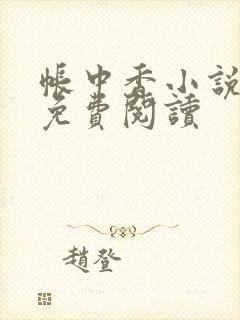 帳中香小說
免費閱讀
趙登